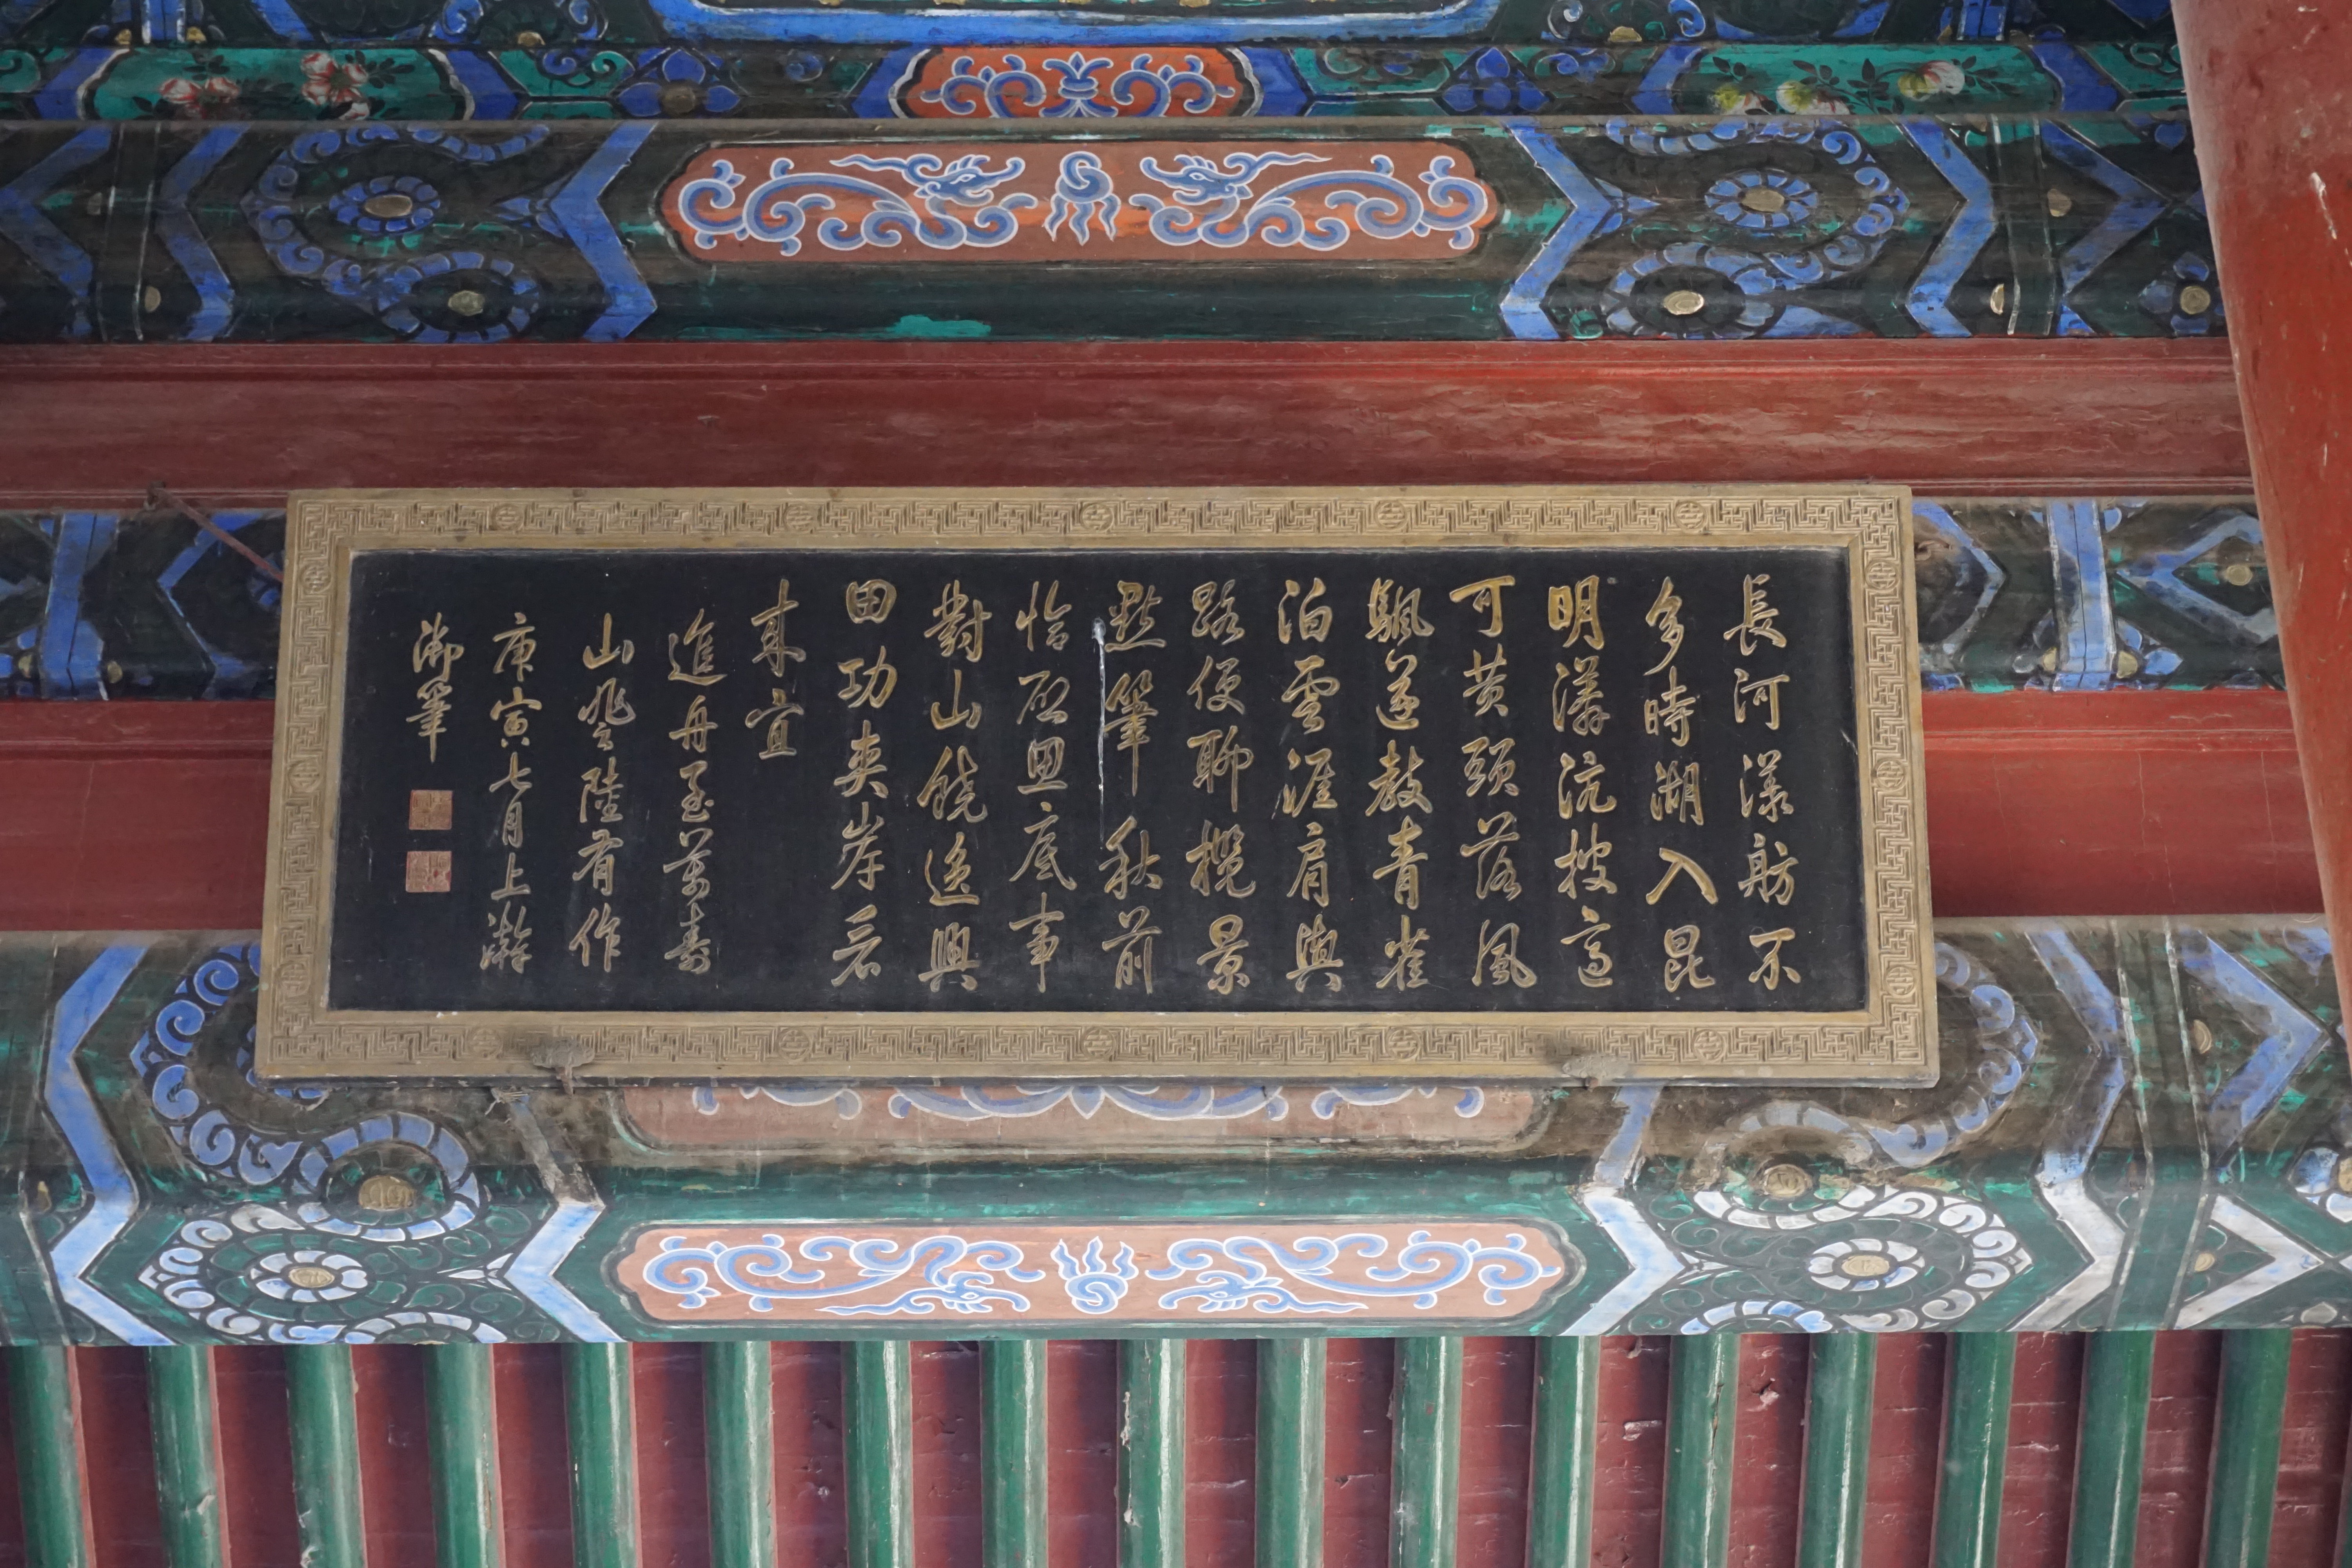 長河漾舫不
多時湖入昆
明漭沆披適
可黄頭落風
颿遂教青雀
泊雲涯肩輿
路便聊攬景
點筆秋前
恰啟思底事
對山饒逸興
田功夾岸看
來宜
進舟至萬壽
山登陸有作
庚寅七月上澣
御筆